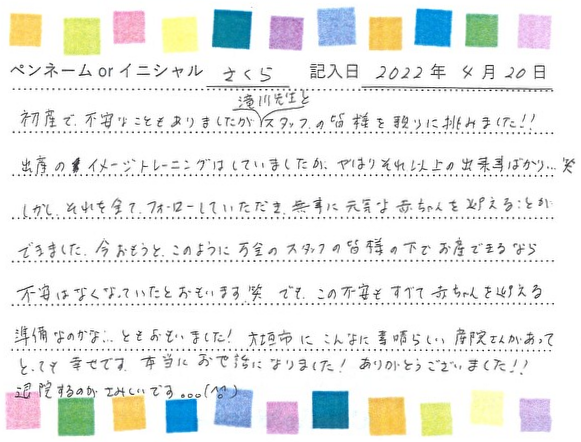 ペンネーム or イニシャル さくら 記入日 2022年 4月 20日
滝川先生と
初産で、不安なこともありましたがスタッフの皆様を頼りに挑みました!!
出産のイメージトレーニングはしていましたが、やはりそれ以上の出来事ばかり…笑
しかし、それを全て、フォローしていただき、無事に元気な赤ちゃんを迎えることが
できました。今おもうと、このように万全のスタッフの皆様の下でお産できるなら
不安はなくなっていたとおもいます笑 でも、この不安もすべて赤ちゃんを迎える
準備なのかな…ともおもいました! 大垣市にこんなに素晴らしい産院さんがあって
とっても幸せです。本当にお世話になりました! ありがとうございました!!
退院するのがさみしいです。。。(^^)